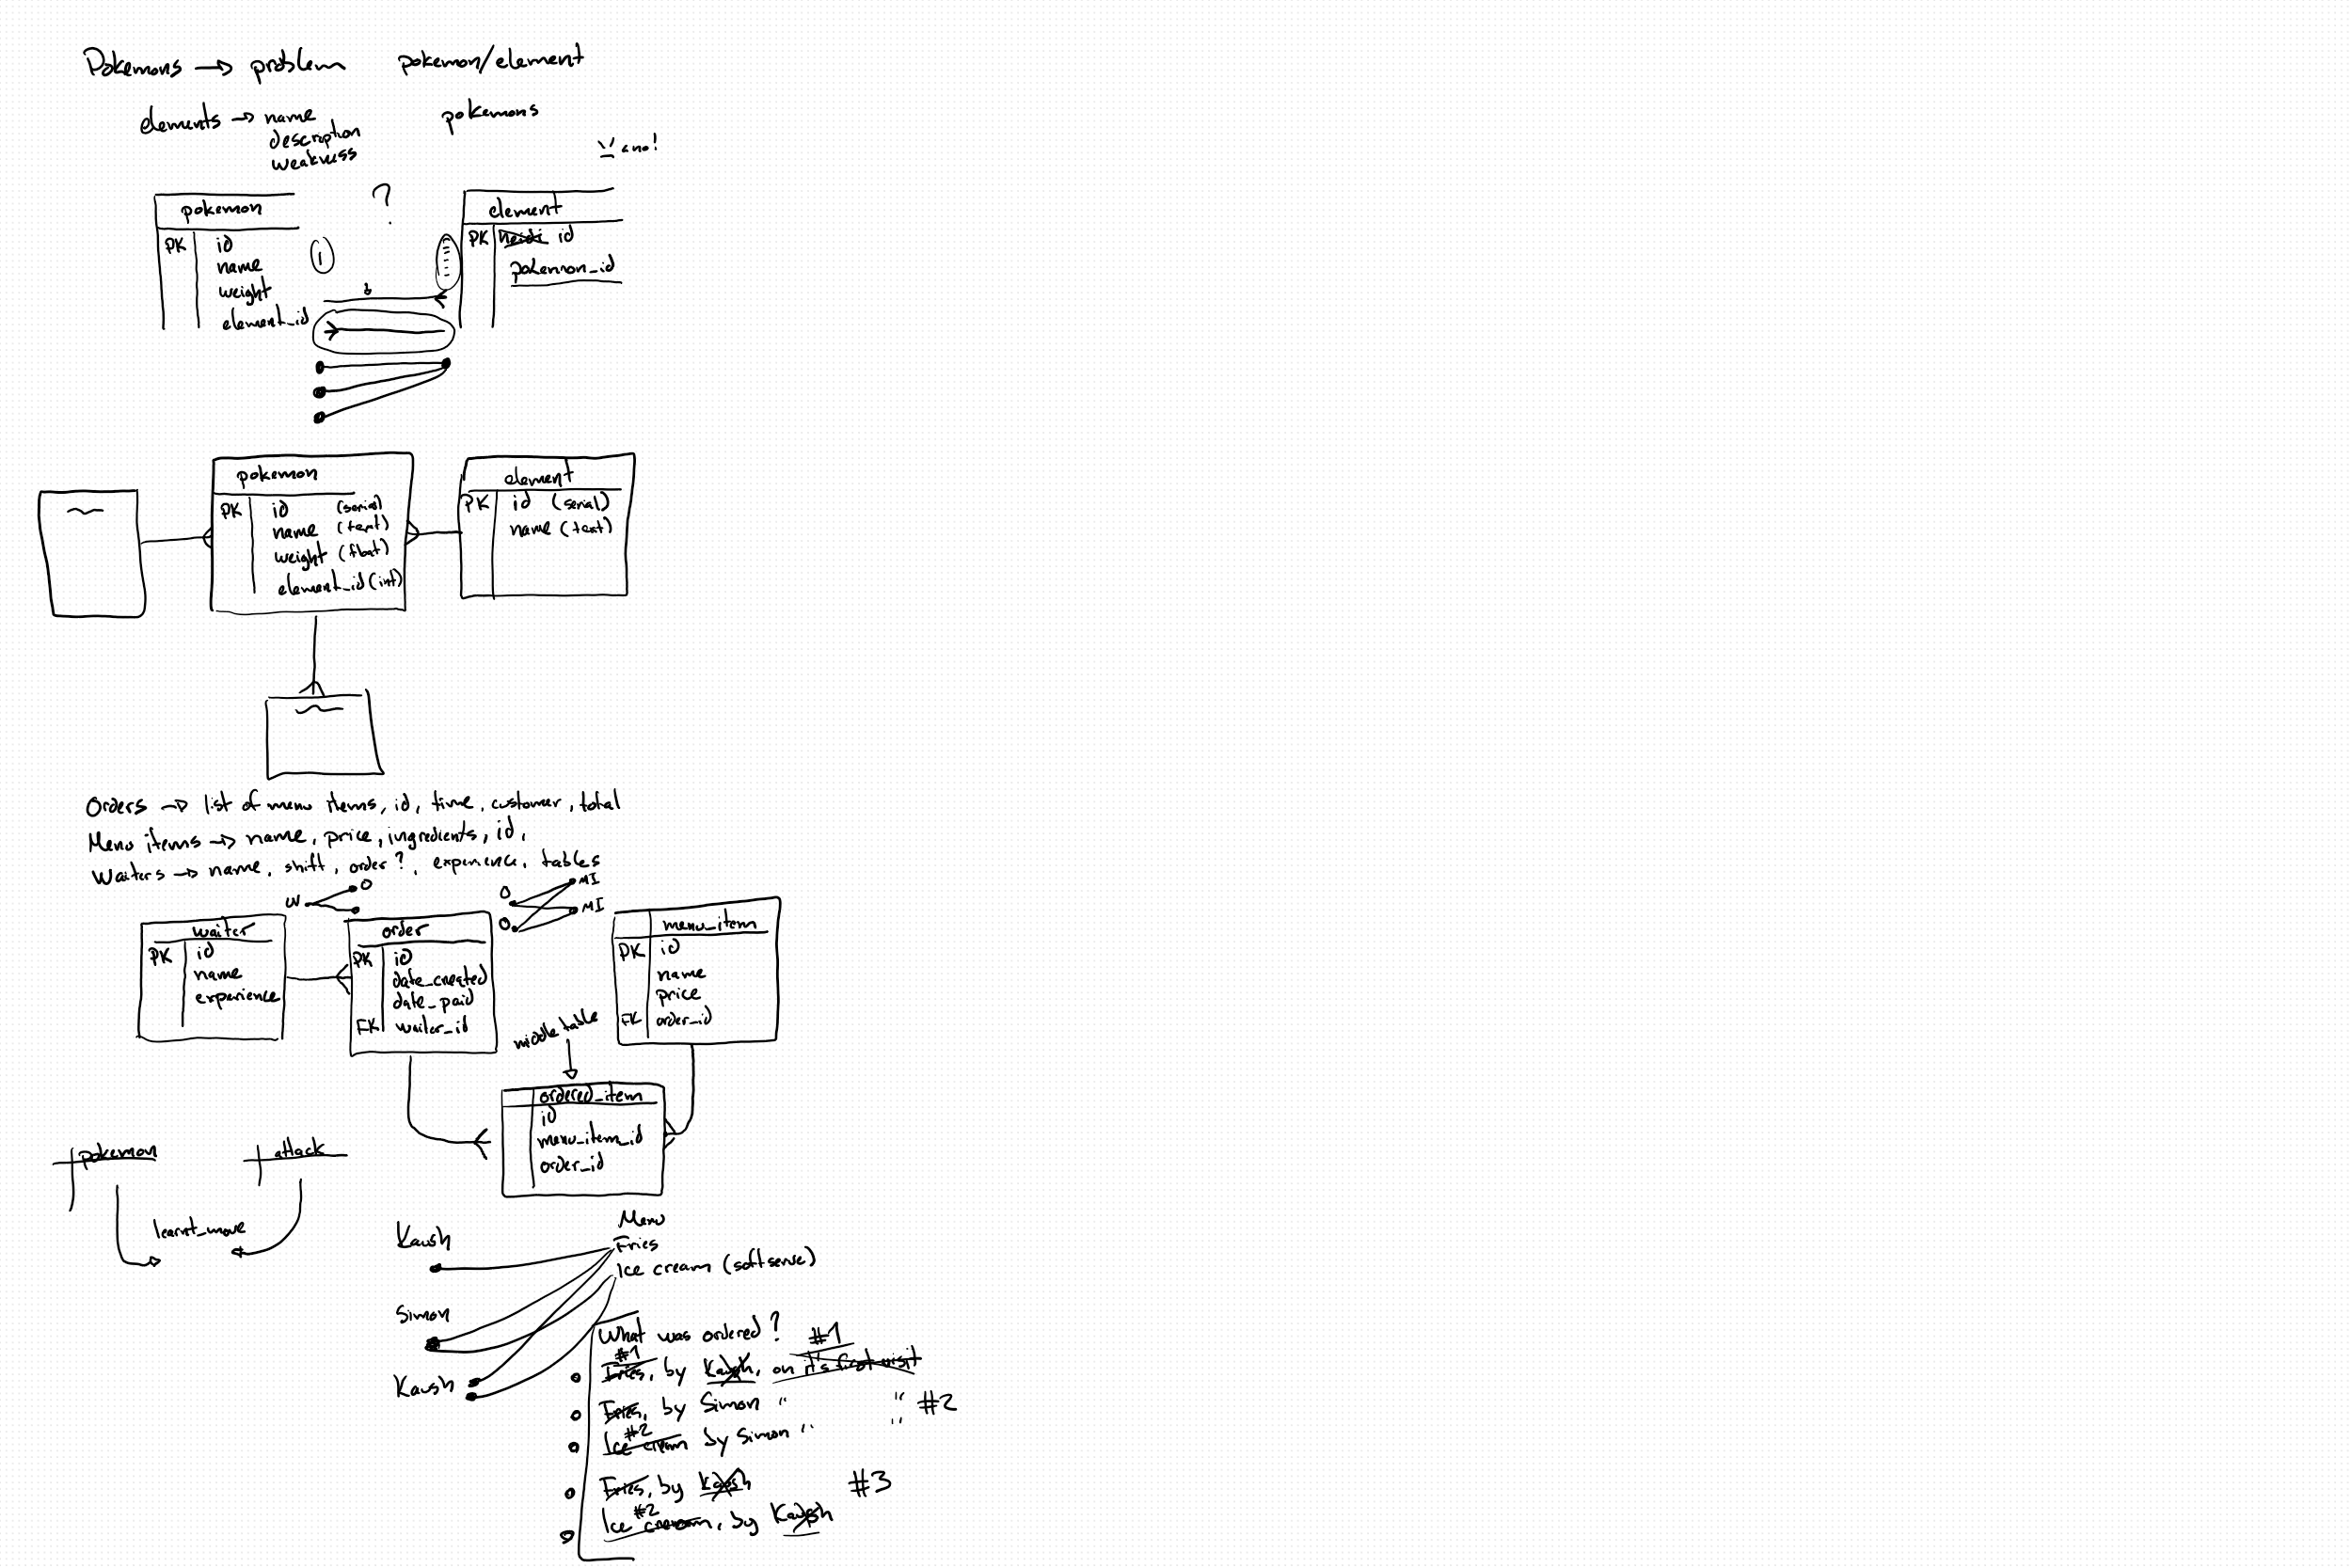 Pokemons → problem pokemon/element
elements → name
description
weakness
pokemons
?
pokemon
PK id
name
weight
element_id
1
element
PK id
pokemon_id
pokemon
PK id (serial)
name (text)
weight (float)
element_id (int)
element
PK id (serial)
name (text)
Orders → list of menu items, id, time, customer, total
Menu items → name, price, ingredients, id,
Waiters → name, shift, order?, experience, tables
W O
O MI
O MI
waiter
PK id
name
experience
order
PK id
date_created
date_paid
FK waiter_id
menu_item
PK id
name
price
FK order_id
middle table
ordered_item
id
menu_item_id
order_id
pokemon attack
learnt_move
Kaush
Simon
Kaush
Menu
Fries
Ice cream (soft serve)
What was ordered?
#1 #1
Fries, by Kaush, on it's first visit
Fries, by Simon " " #2
#2
Ice cream by Simon " "
Fries, by Kaush #3
#2
Ice cream, by Kaush